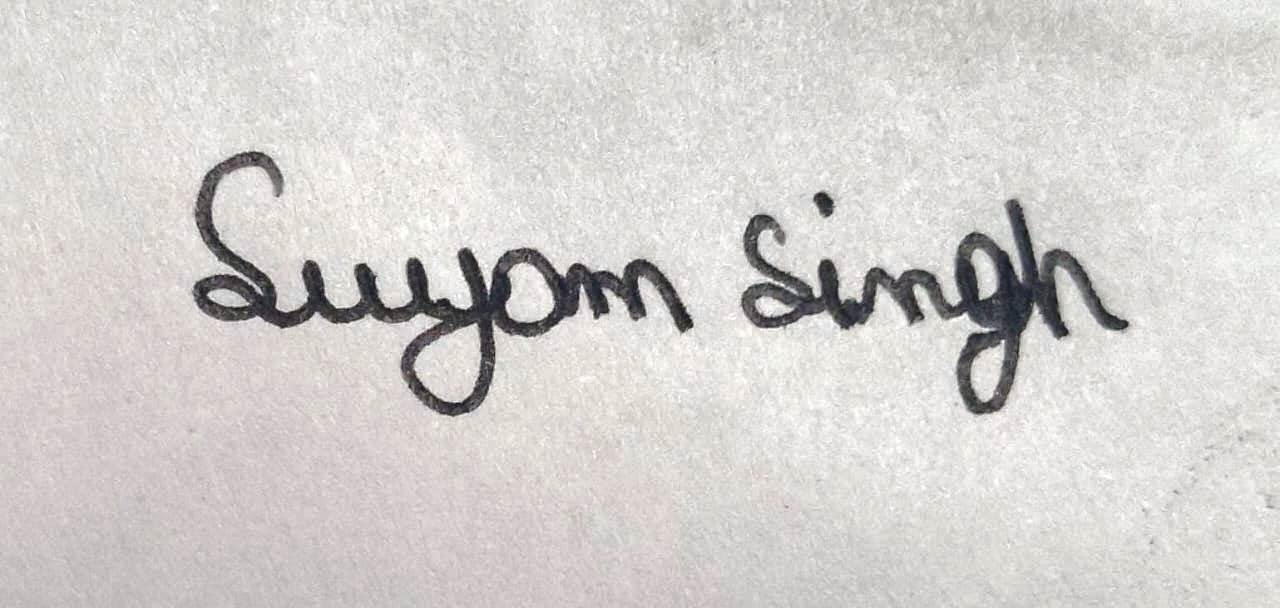 Suyom Singh